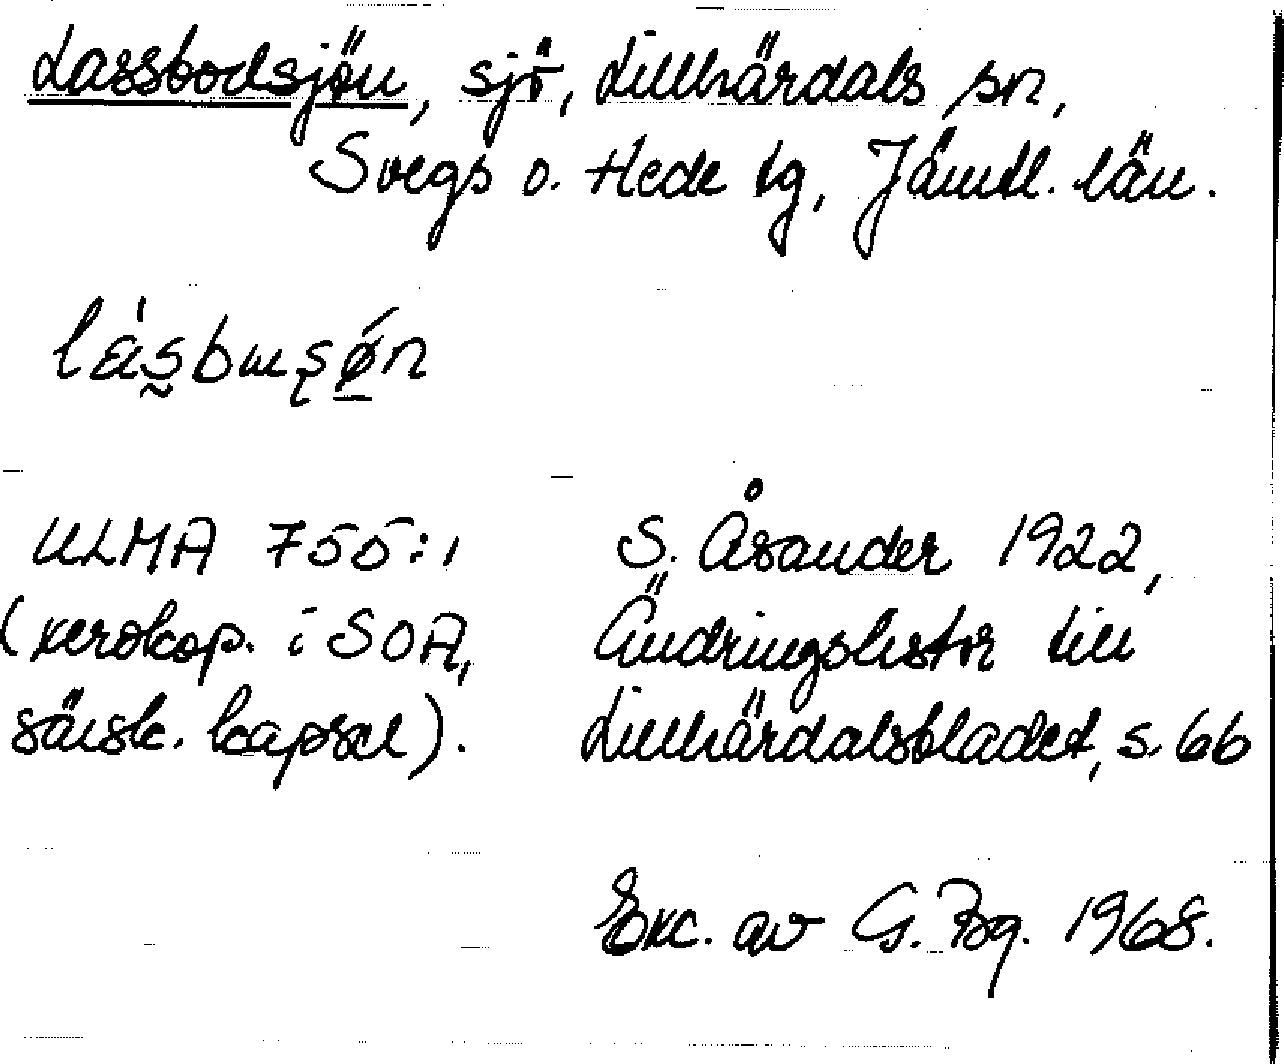 Lassbodsjön, sjö, Lillhärdals sn,
Svegs o. Hede tg, Jämtl. län.
ULMA 755:1
(xerokop. i SOA,
särsk. kapsel).
S. Åsander 1922,
Ändringslistor till
Lillhärdalsbladet, s. 66
Exc. av G. Bg. 1968.